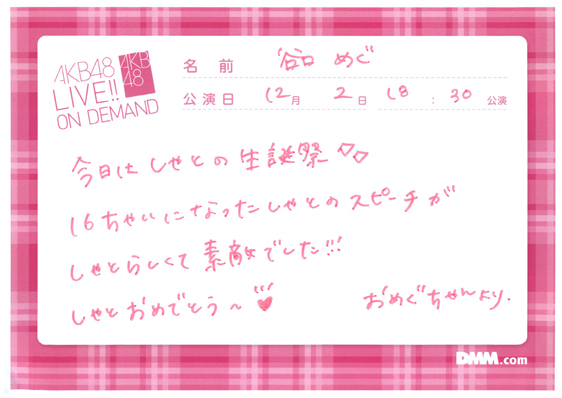 AKB48
LIVE!!
ON DEMAND
AKB
48
名前 谷口 めぐ
公演日 12月 2日 18:30公演
今日は しゃとの 生誕祭
16ちゃいになったしゃとのスピーチが
しゃとらしくて 素敵でした!!!
しゃとおめでとう〜
おめぐちゃんより.
DMM.com